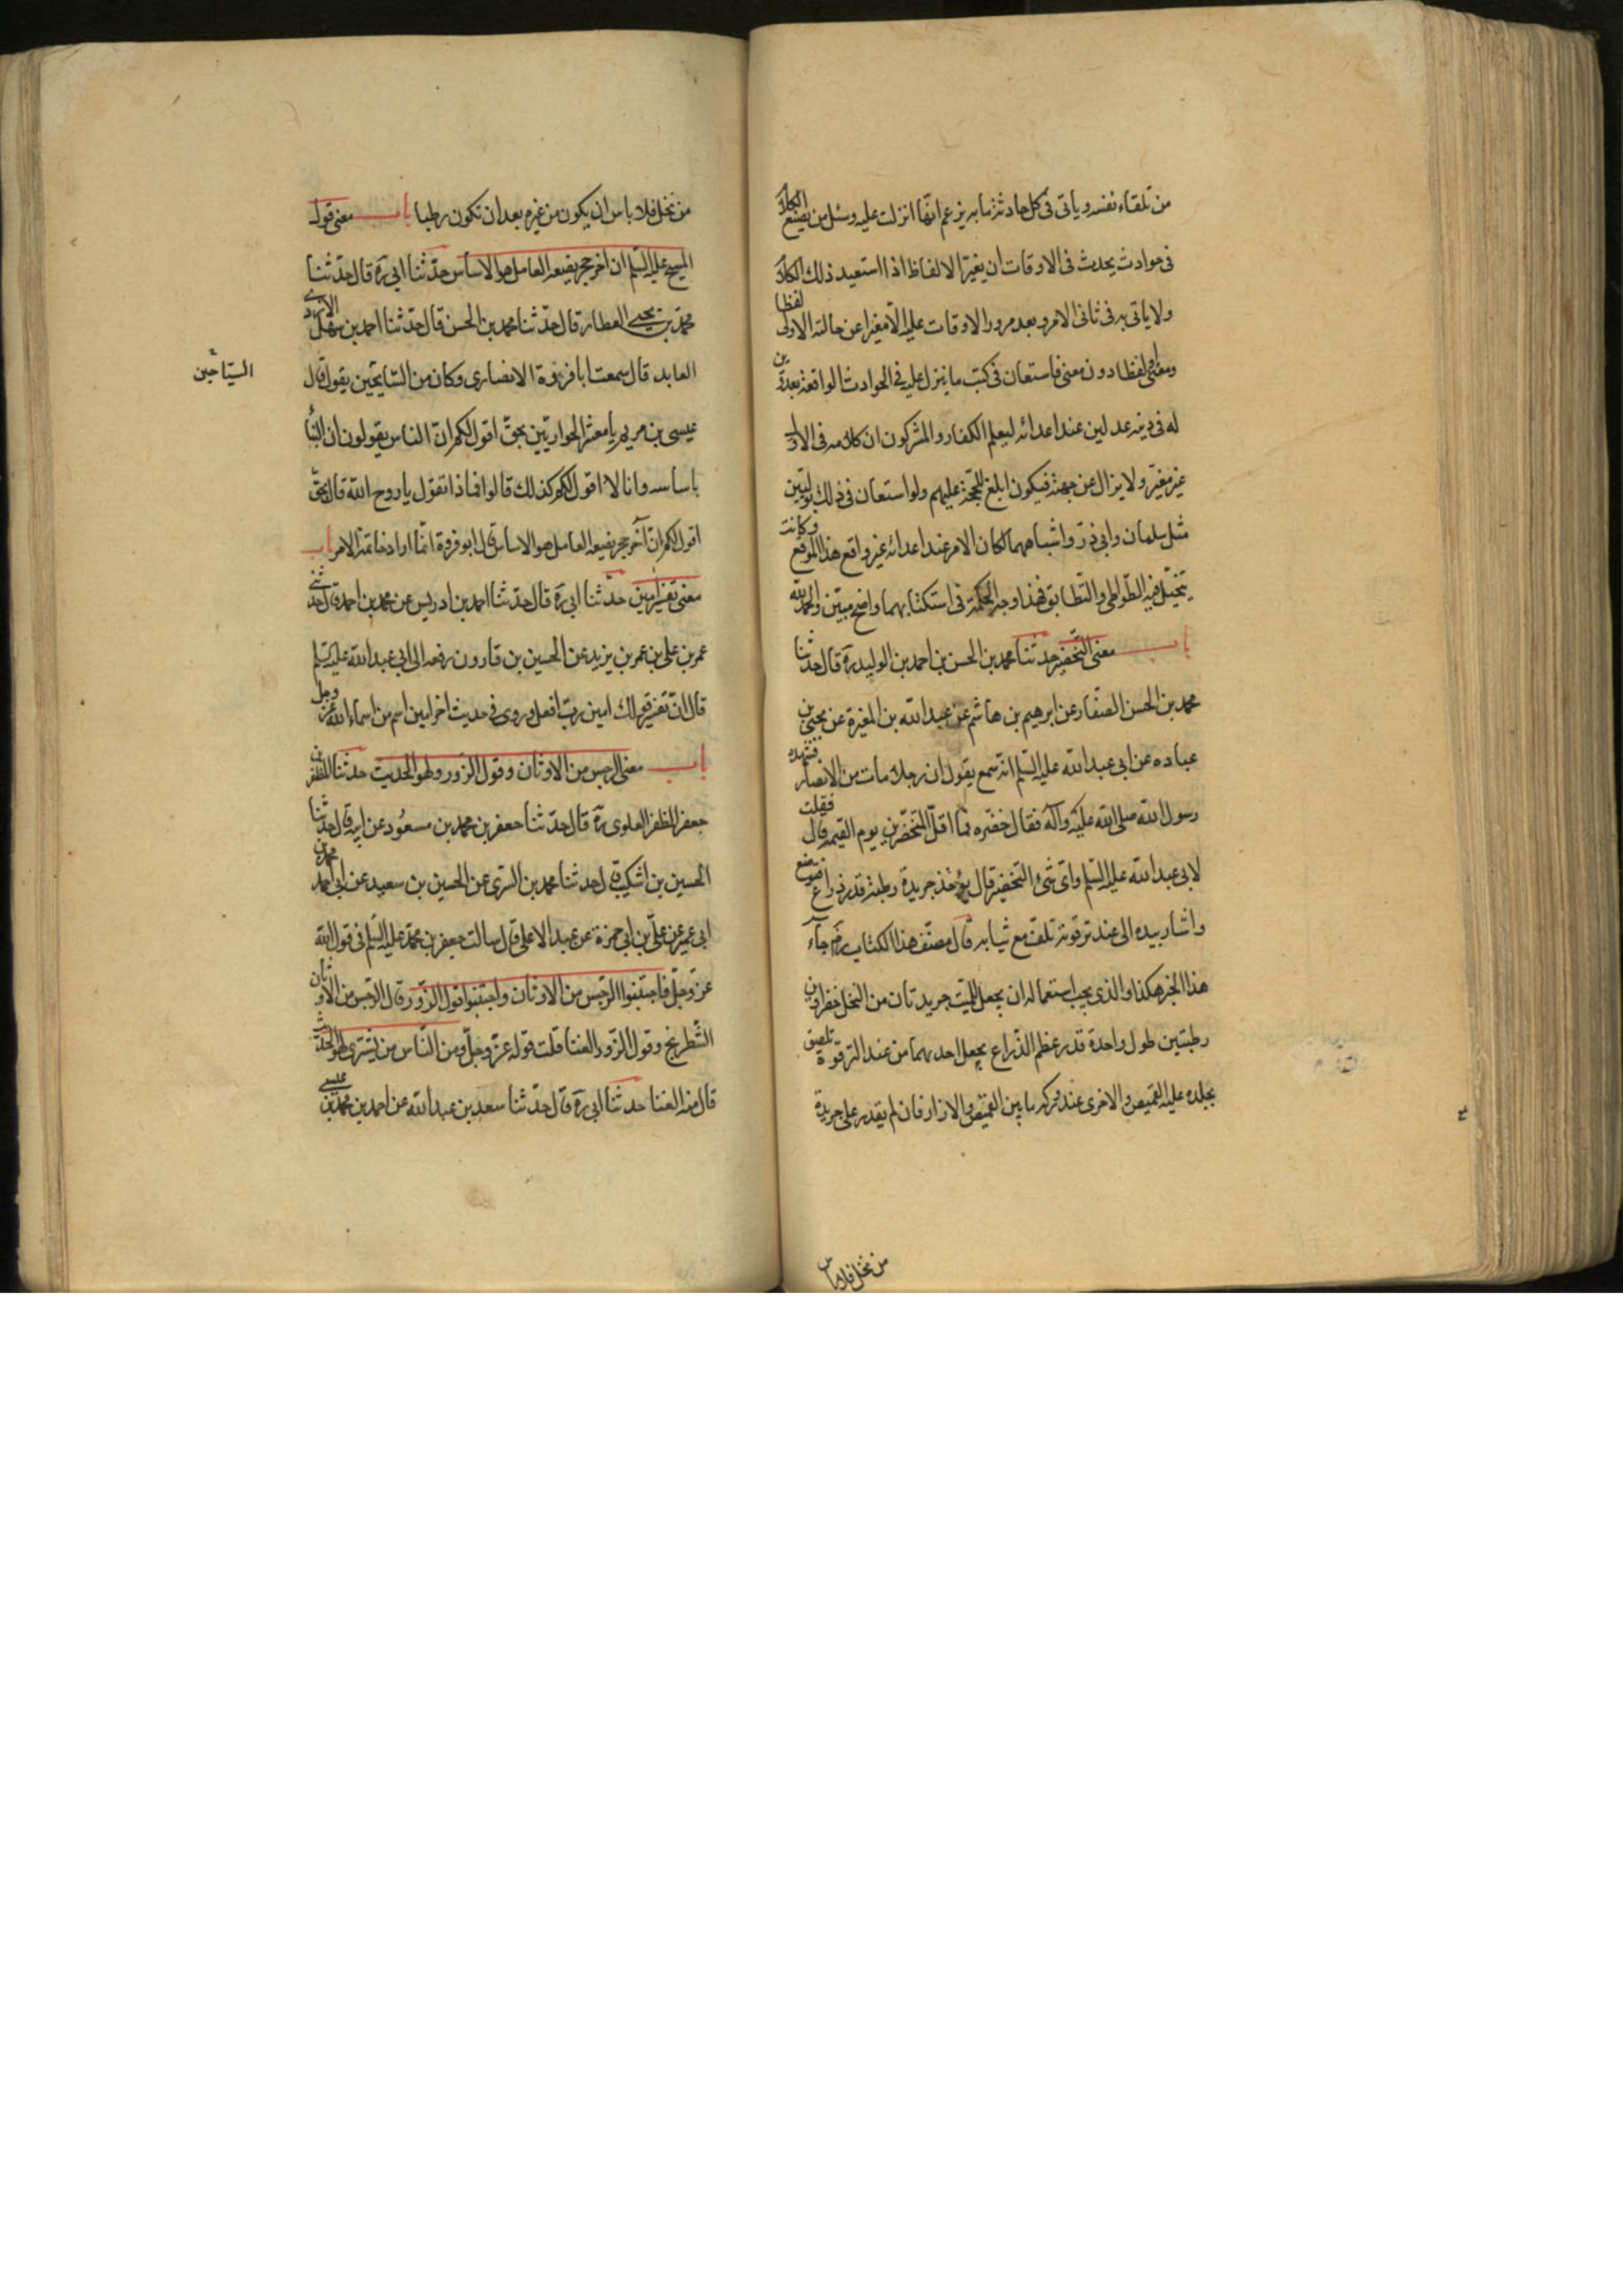 من تلقاء نفسه وياتى فى كل حادثة ما به يزعم انها انزلت عليه وسئل من يضيع الكلام
فى حوادث يحدث فى الاوقات ان يغير الالفاظ اذا استعيد ذلك الكلام
ولا ياتى به فى ثانى الامر وبعد مرور الاوقات عليه الا مغيرا عن حالته الاولى لفظا
ومعنى او لفظا دون معنى فاستعان فى كتب ما ينزل عليه فى الحوادث الواقعة بعدوين
له فى دينه عدلين عند اعدائه ليعلم الكفار والمشركون ان كلامه فى الاول
غير مغير ولا يزال عن جهته فيكون ابلغ للحجة عليهم ولو استعان فى ذلك بوليين
مثل سلمان وابى ذر واشباههما لكان الامر عند اعدائه غير واقع هذا الموقع وكانت
يتخيل فيه التواطى والتطابق فهذا وجه الحكمة فى استكتابهما واضح مبين والحمد لله
باب معنى التخضير حدثنا محمد بن الحسن بن احمد بن الوليد ره قال حدثنا
محمد بن الحسن الصفار عن ابرهيم بن هاشم عن عبد الله بن المغيرة عن يحيى بن
عباده عن ابى عبد الله عليه السلم انه سمع يقول ان رجلا مات من الانصار فشهده
رسول الله صلى الله عليه وآله فقال خضره فما اقل المتخضرين يوم القيمة قال فقلت
لابى عبد الله عليه السلم واى شئ التخضير قال يؤخذ جريدة رطبة قدر ذراع فتوضع
واشار بيده الى عند ترقوته تلف مع ثيابه قال مصنف هذا الكتاب ره جاء
هذا الخبر هكذا والذى يجب استعماله ان يجعل للميت جريدتان من النخل خضراوين
رطبتين طول واحدة قدر عظم الذراع يجعل احديهما من عند الترقوة تلصق
بجلده عليه القميص والاخرى عند وركه ما بين القميص والازار فان لم يقدر على جريدة
من نخل فلا باس
من نخل فلا باس ان يكون من غيره بعد ان تكون رطبا باب معنى قول
المسيح عليه السلم ان اخر حجر يضعه العامل هو الاساس حدثنا ابى ره قال حدثنا
محمد بن يحيى العطار قال حدثنا محمد بن الحسن قال حدثنا احمد بن سهل الازدى
العابد قال سمعت ابا فروة الانصارى وكان من السايحين يقول قال
السياحين
عيسى بن مريم يا معشر الحواريين بحق اقول لكم ان الناس يقولون ان البناء
باساسه وانا لا اقول لكم كذلك قالوا فماذا تقول يا روح الله قال بحق
اقول لكم ان آخر حجر يضعه العامل هو الاساس قال ابو فروة انما اراد خاتمة الامر باب
معنى تفسير امين حدثنا ابى ره قال حدثنا احمد بن ادريس عن محمد بن احمد قال حدثنى
عمر بن على بن عمر بن يزيد عن الحسين بن قارون رفعه الى ابى عبد الله عليه السلم
قال ان تفسير قولك امين رب افعل وروى فى حديث اخر امين اسم من اسماء الله عز وجل
باب معنى الرجس من الاوثان وقول الزور ولهو الحديث حدثنا المظفر بن
جعفر المظفر العلوى ره قال حدثنا جعفر بن محمد بن مسعود عن ابيه قال حدثنا
الحسين بن اشكيب قال حدثنا محمد بن السرى عن الحسين بن سعيد عن ابى احمد محمد بن
ابى عمير عن على بن ابى حمزة عن عبد الاعلى قال سالت جعفر بن محمد عليه السلم فى قول الله
عز وجل فاجتنبوا الرجس من الاوثان واجتنبوا قول الزور قال الرجس من الاوثان
الشطرنج وقول الزور الغنا قلت قوله عز وجل ومن الناس من يشترى لهو الحديث
قال منه الغنا حدثنا ابى ره قال حدثنا سعد بن عبد الله عن احمد بن محمد بن عيسى